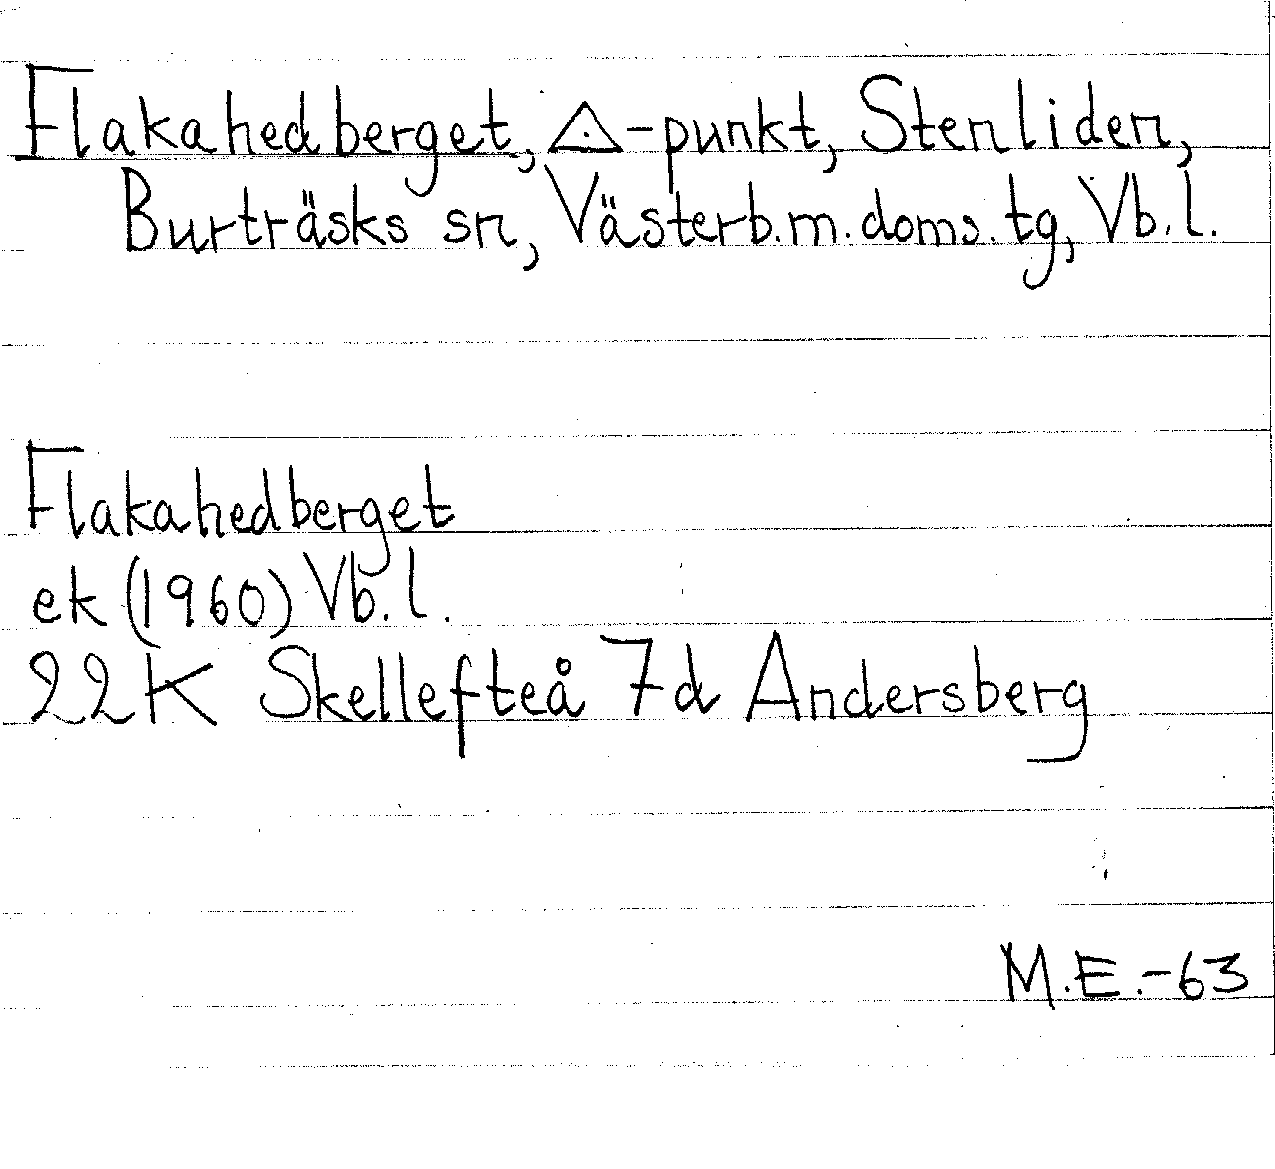 Flakahedberget, △-punkt, Stenliden,
Burträsks sn, Västerb.m.doms.tg, Vb.l.
Flakahedberget
ek (1960) Vb.l.
22K Skellefteå 7d Andersberg
M.E.-63